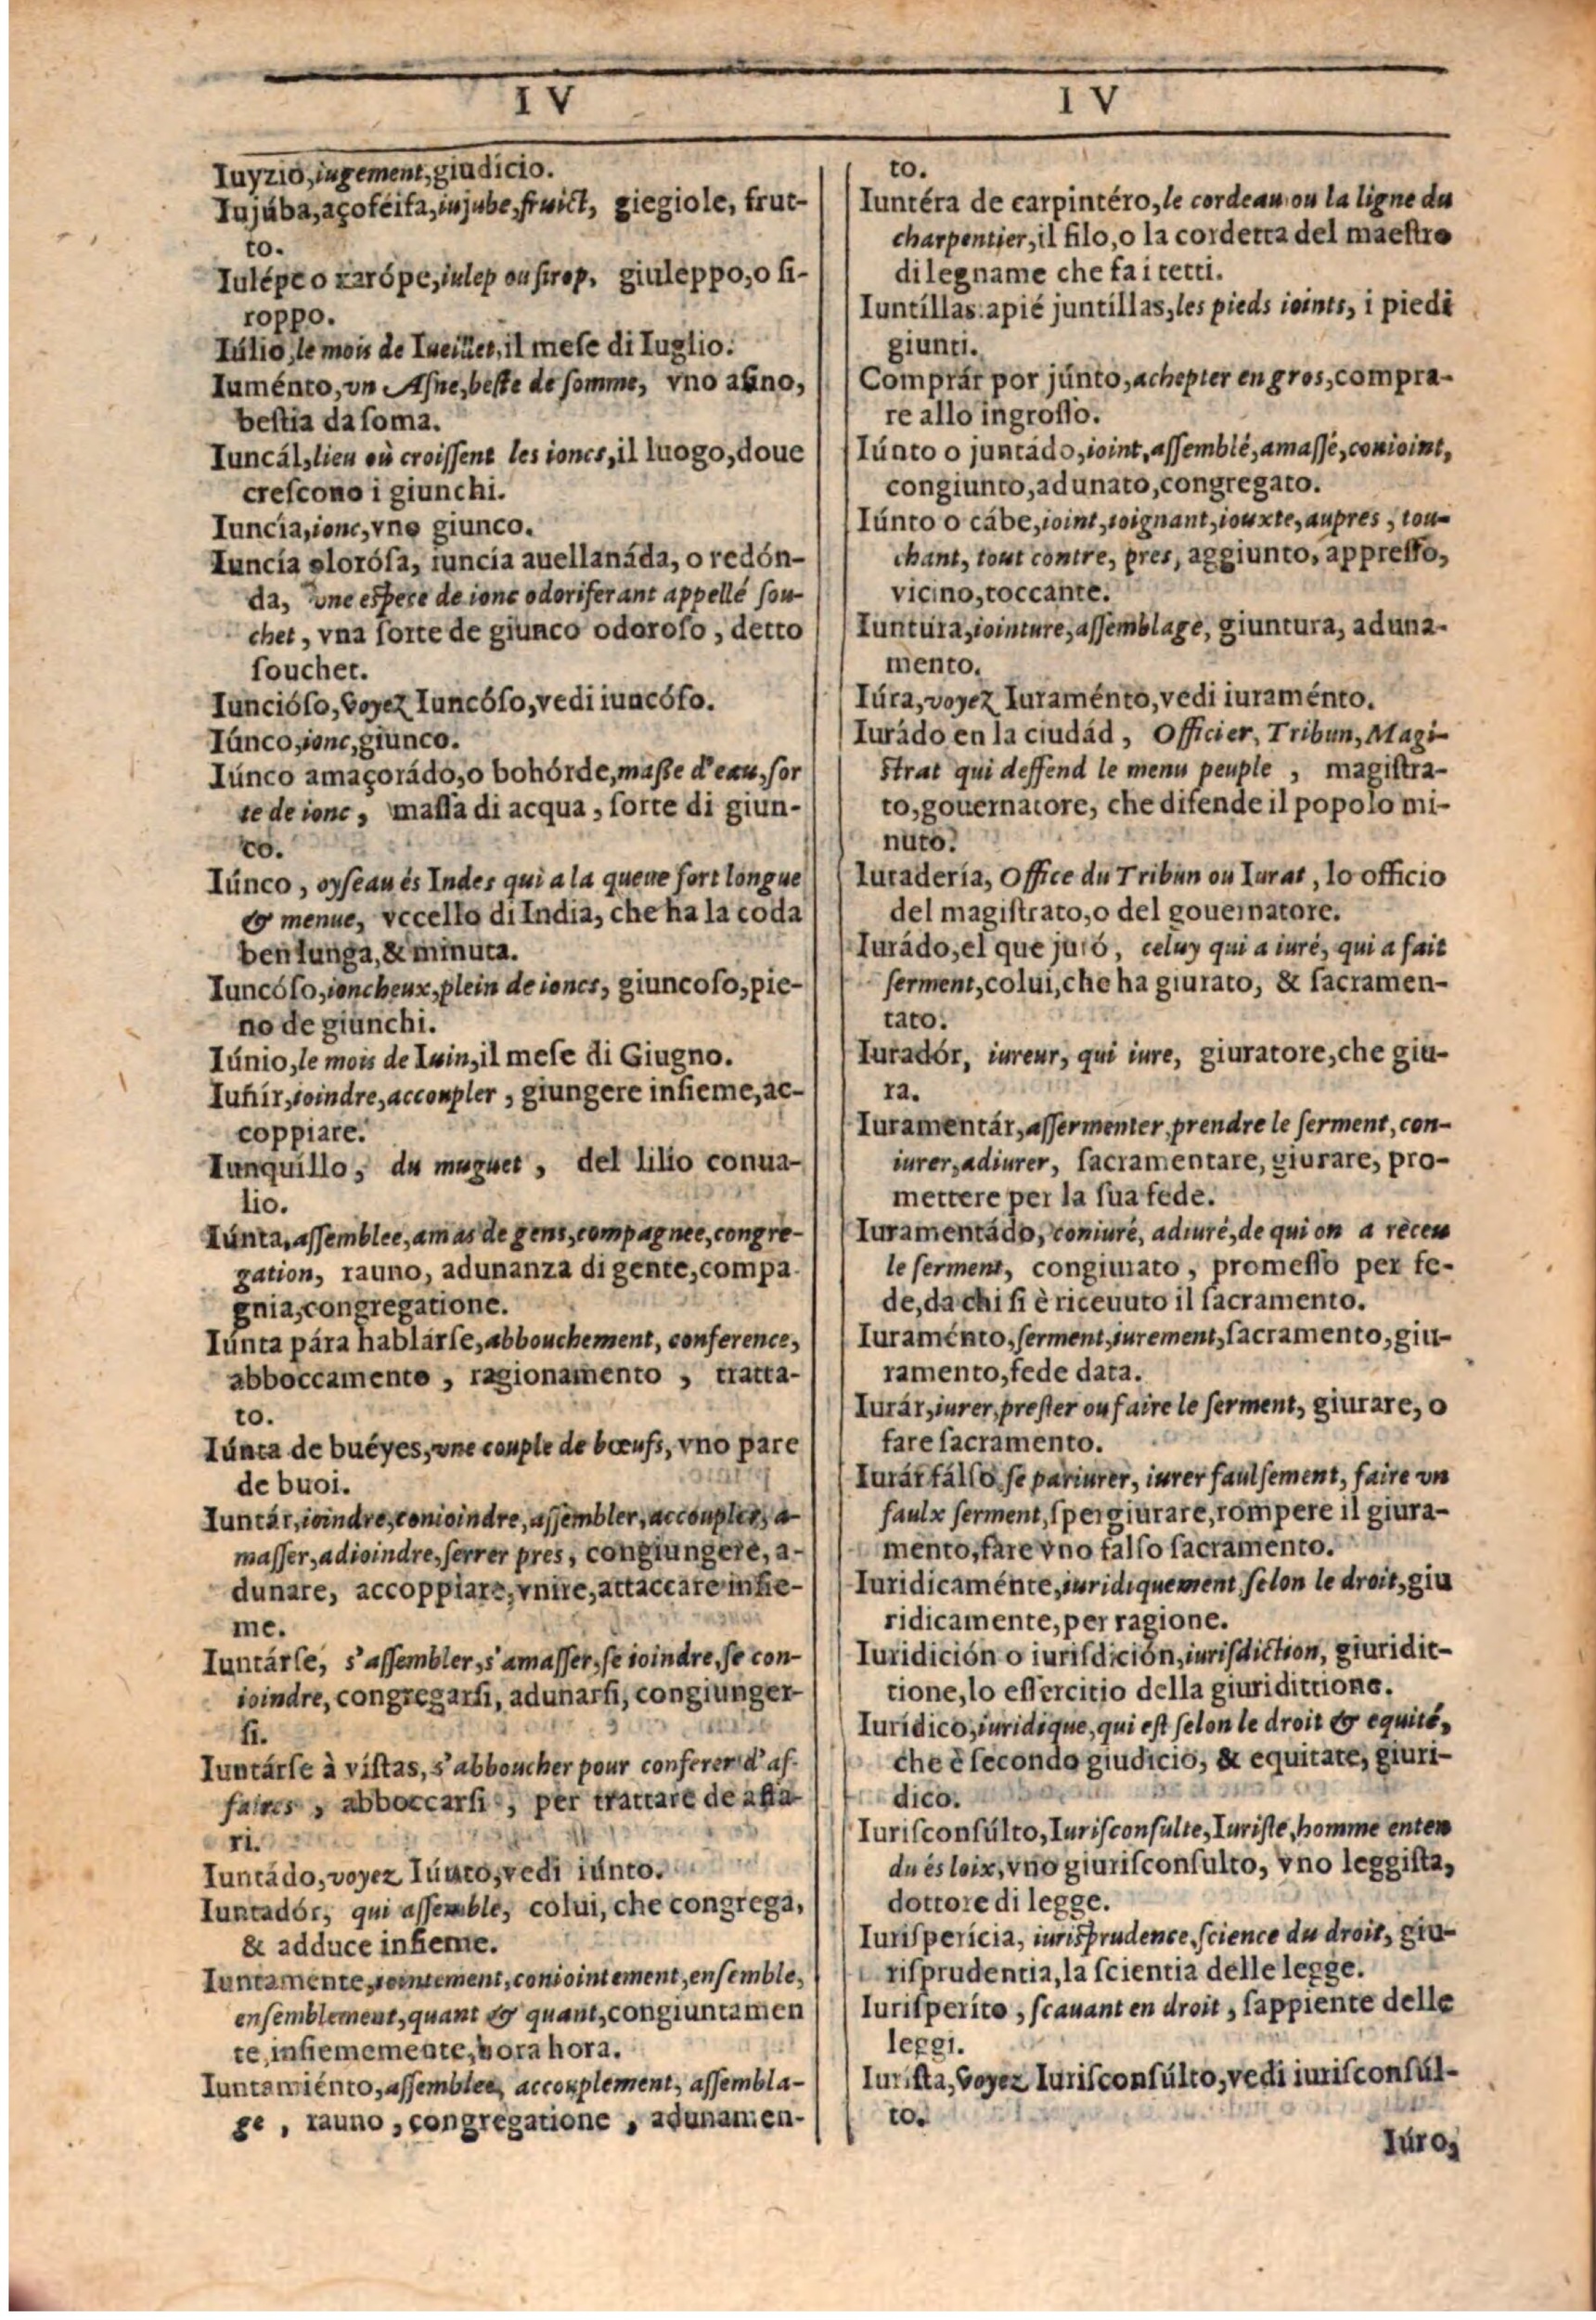 IV
Iuyzio, iugement, giudicio.
Iujúba, açoféifa, iujube, fruict, giegiole, frut-
to.
Iulépe o xarópe, iulep ou sirop, giuleppo, o si-
roppo.
Iúlio, le mois de Iueillet, il mese di Iuglio.
Iuménto, vn Asne, beste de somme, vno asino,
bestia da soma.
Iuncál, lieu où croissent les ioncs, il luogo, doue
crescono i giunchi.
Iuncía, ionc, vno giunco.
Iuncía olorósa, iuncía auellanáda, o redón-
da, vne espece de ionc odoriferant appellé sou-
chet, vna sorte de giunco odoroso, detto
souchet.
Iuncióso, voyez Iuncóso, vedi iuncóso.
Iúnco, ionc, giunco.
Iúnco amaçorádo, o bohórde, masse d'eau, sor
te de ionc, massa di acqua, sorte di giun-
co.
Iúnco, oyseau és Indes qui a la queue fort longue
& menue, vccello di India, che ha la coda
ben lunga, & minuta.
Iuncóso, ioncheux, plein de ioncs, giuncoso, pie-
no de giunchi.
Iúnio, le mois de Iuin, il mese di Giugno.
Iuñír, ioindre, accoupler, giungere insieme, ac-
coppiare.
Iunquíllo, du muguet, del lilio conua-
lio.
Iúnta, assemblee, amas de gens, compagnee, congre-
gation, rauno, adunanza di gente, compa
gnia, congregatione.
Iúnta pára hablárse, abbouchement, conference,
abboccamento, ragionamento, tratta-
to.
Iúnta de buéyes, vne couple de bœufs, vno pare
de buoi.
Iuntár, ioindre, conioindre, assembler, accoupler, a-
masser, adioindre, serrer pres, congiungere, a-
dunare, accoppiare, vnire, attaccare insie-
me.
Iuntárse, s'assembler, s'amasser, se ioindre, se con-
ioindre, congregarsi, adunarsi, congiunger-
si.
Iuntárse à vistas, s'abboucher pour conferer d'af-
faires, abboccarsi, per trattare de affa-
ri.
Iuntádo, voyez Iúnto, vedi iúnto.
Iuntadór, qui assemble, colui, che congrega,
& adduce insieme.
Iuntamente, iointement, coniointement, ensemble,
ensemblement, quant & quant, congiuntamen
te, insiememente, hora hora.
Iuntamiénto, assemblee, accouplement, assembla-
ge, rauno, congregatione, adunamen-
IV
to.
Iuntéra de carpintéro, le cordeau ou la ligne du
charpentier, il filo, o la cordetta del maestro
di legname che fa i tetti.
Iuntíllas: apié juntíllas, les pieds ioints, i piedi
giunti.
Comprár por júnto, achepter en gros, compra-
re allo ingrosso.
Iúnto o juntádo, ioint, assemblé, amassé, conioint,
congiunto, adunato, congregato.
Iúnto o cábe, ioint, ioignant, iouxte, aupres, tou-
chant, tout contre, pres, aggiunto, appresso,
vicino, toccante.
Iuntúra, iointure, assemblage, giuntura, aduna-
mento.
Iúra, voyez Iuraménto, vedi iuraménto.
Iurádo en la ciudád, Officier, Tribun, Magi-
strat qui deffend le menu peuple, magistra-
to, gouernatore, che difende il popolo mi-
nuto.
Iuradería, Office du Tribun ou Iurat, lo officio
del magistrato, o del gouernatore.
Iurádo, el que juró, celuy qui a iuré, qui a fait
serment, colui, che ha giurato, & sacramen-
tato.
Iuradór, iureur, qui iure, giuratore, che giu-
ra.
Iuramentár, assermenter, prendre le serment, con-
iurer, adiurer, sacramentare, giurare, pro-
mettere per la sua fede.
Iuramentádo, coniuré, adiuré, de qui on a receu
le serment, congiurato, promesso per fe-
de, da chi si è riceuuto il sacramento.
Iuraménto, serment, iurement, sacramento, giu-
ramento, fede data.
Iurár, iurer, prester ou faire le serment, giurare, o
fare sacramento.
Iurár fálso, se pariurer, iurer faulsement, faire vn
faulx serment, spergiurare, rompere il giura-
mento, fare vno falso sacramento.
Iuridicaménte, iuridiquement, selon le droit, giu
ridicamente, per ragione.
Iuridición o iurisdición, iurisdiction, giuridit-
tione, lo essercitio della giuridittione.
Iurídico, iuridique, qui est selon le droit & equité,
che è secondo giudicio, & equitate, giuri-
dico.
Iurisconsúlto, Iurisconsulte, Iuriste, homme enten
du és loix, vno giurisconsulto, vno leggista,
dottore di legge.
Iurisperícia, iurisprudence, science du droit, giu-
risprudentia, la scientia delle legge.
Iurisperíto, scauant en droit, sappiente delle
leggi.
Iurista, voyez Iurisconsúlto, vedi iurisconsúl-
to.
Iúro,